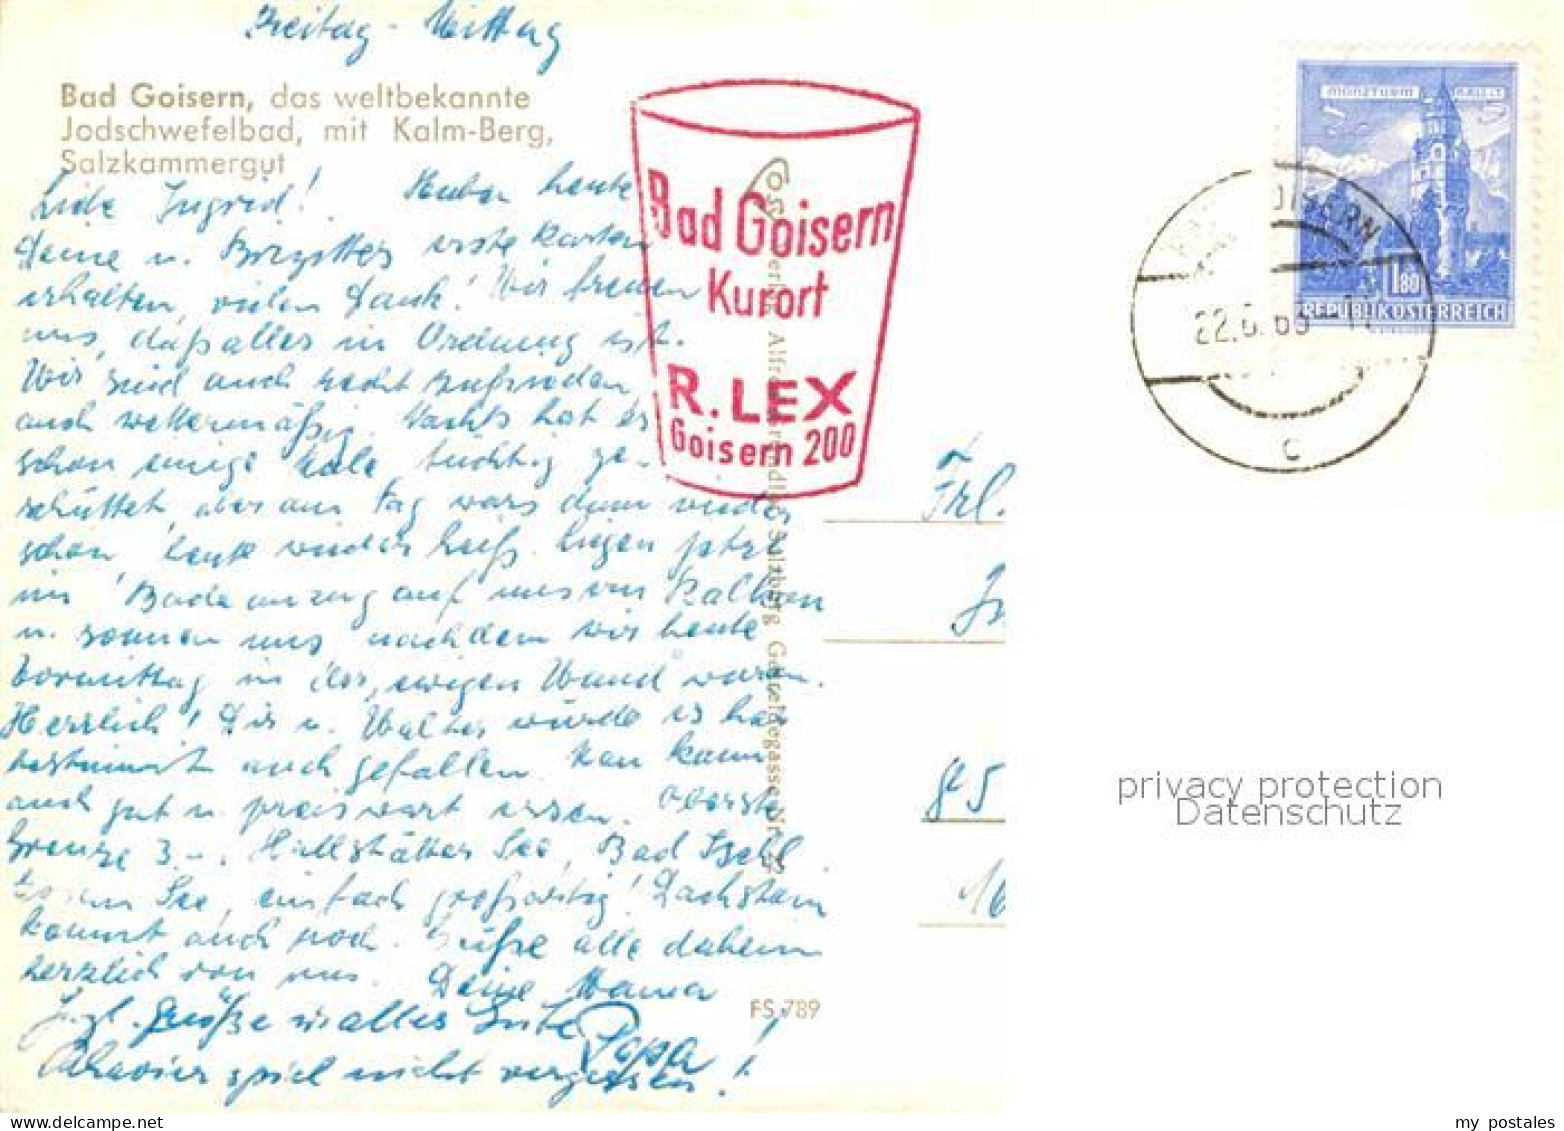 Freitag - Mittag
Bad Goisern, das weltbekannte
Jodschwefelbad, mit Kalm-Berg,
Salzkammergut
Liebe Ingrid! Haben heute
Deine u. Brigittes erste Karten
erhalten, vielen Dank! Wir freuen
uns, daß alles in Ordnung ist.
Wir sind auch recht zufrieden
auch wettermäßig. Nachts hat es
schon einige Male tüchtig ge-
schüttet, aber am Tag wars dann wieder
schön, heute wieder heiß. Liegen jetzt
im Badeanzug auf unseren Balkon
u. sonnen uns nachdem wir heute
Vormittag in der ewigen Wand waren.
Herrlich! Dir u. Walter würde es hier
bestimmt auch gefallen. Man kann
auch gut u. preiswert essen. Oberste
Grenze 3.-. Hallstätter See, Bad Ischl
See, einfach großartig! Dachstein
kommt auch noch. Grüße alle daheim
herzlich von uns. Deine Mama
Hzl. Grüße u. alles Gute Papa
Klavierspiel nicht vergessen!
Bad Goisern
Kurort
R. LEX
Goisern 200
Salzburg, Getreidegasse Nr. 22
FS 789
MÜNZTURM
1.80
REPUBLIK ÖSTERREICH
GOISERN
22.6.
C
Frl.
16
privacy protection
Datenschutz
my postales